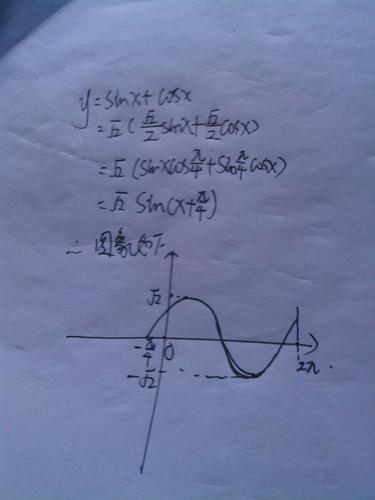 y=sinx+cosx
=√2(√2/2 sinx+√2/2 cosx)
=√2(sinxcosπ/4+sinπ/4cosx)
=√2 sin(x+π/4)
∴图象如下
√2
-π/4 0 2π
-√2